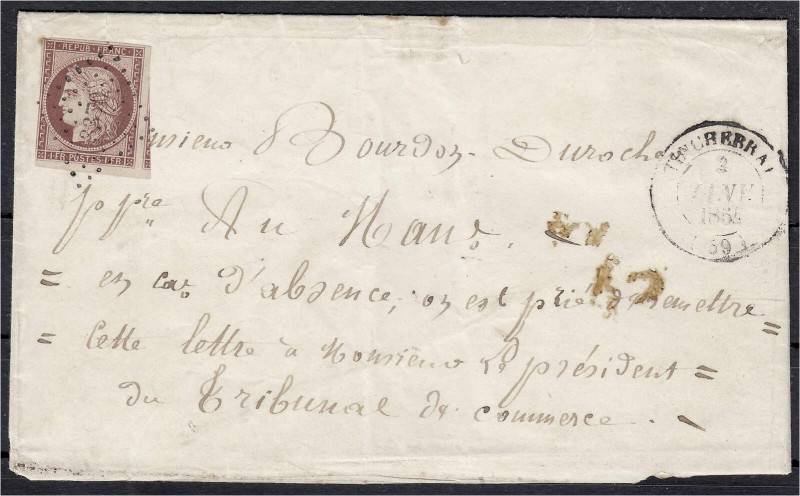 REPUB. FRANC.
1 FR. POSTES 1 FR.
Monsieur Bourdon-Duroche
TINCHEBRAI
2
JANV.
1854
(59)
pppre Au Mans.
= en cas d'absence, on est prié de remettre =
= Cette lettre à Monsieur Le président =
du Tribunal de commerce.